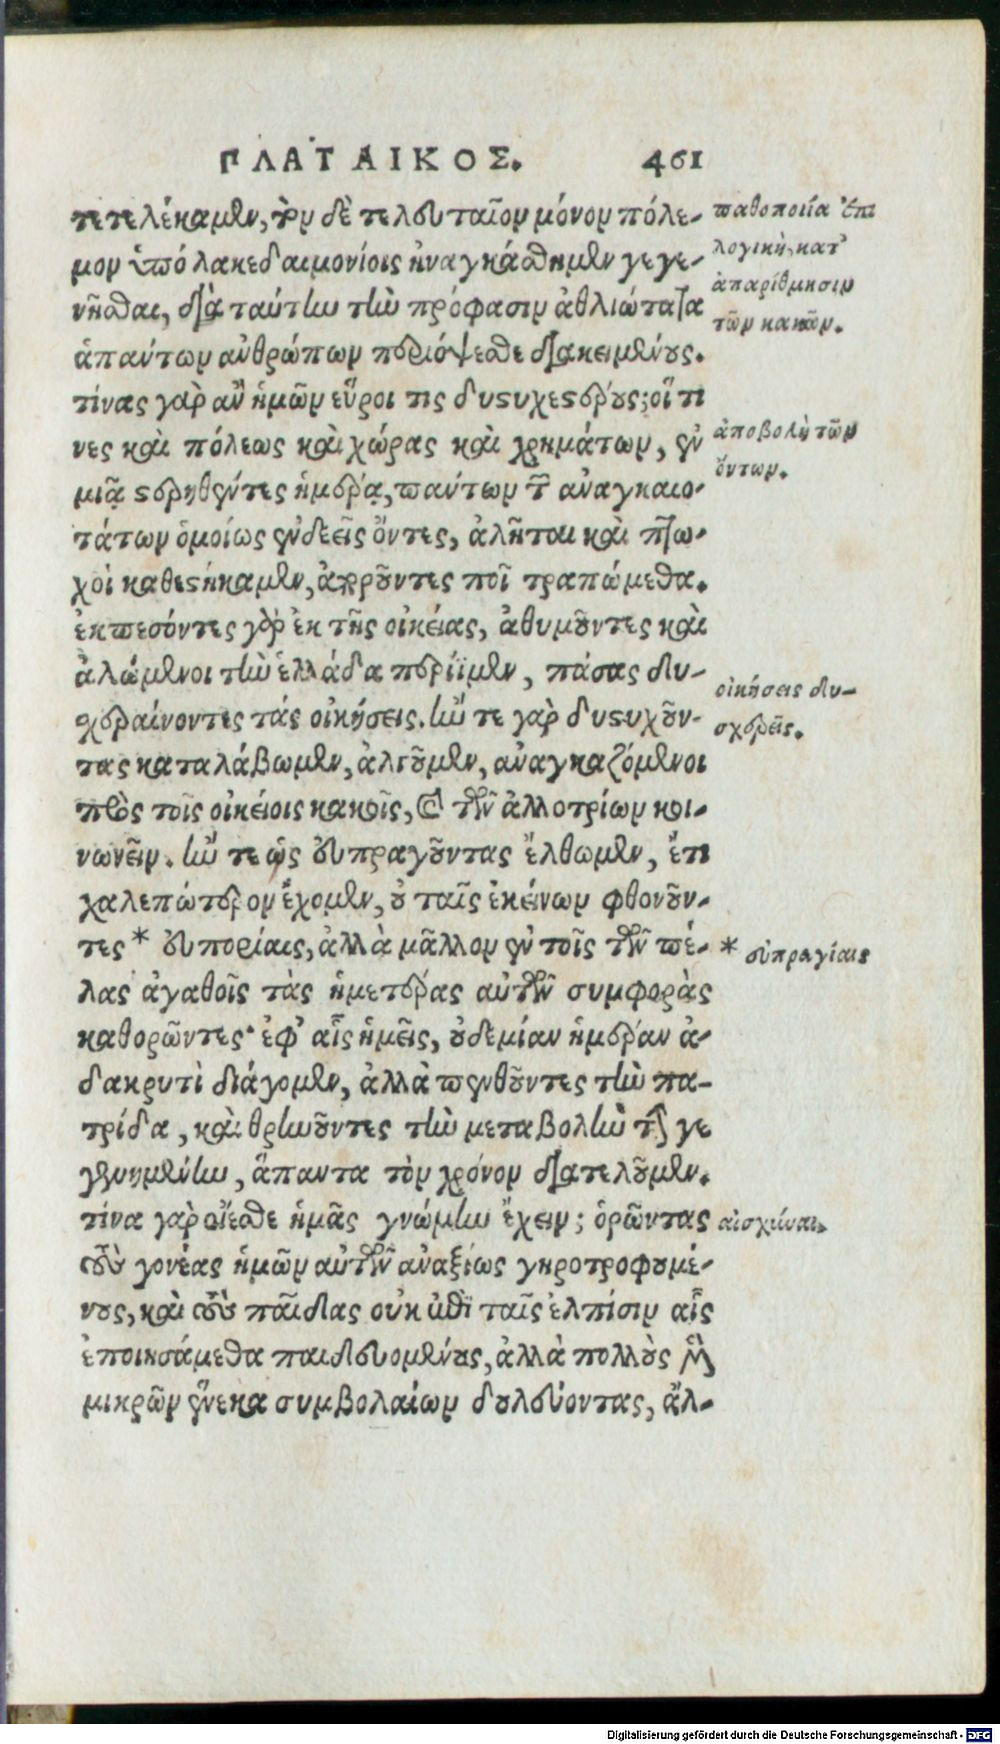 ΠΛΑΤΑΙΚΟΣ. 461
τετελέκαμεν, τὸν δὲ τελευταῖον μόνον πόλε-
μον ὑπὸ λακεδαιμονίοις ἠναγκάσθημεν γεγε-
νῆσθαι, διὰ ταύτην τὴν πρόφασιν ἀθλιώτατα
ἁπάντων ἀνθρώπων περιόψεσθε διακειμένους.
τίνας γὰρ ἂν ἡμῶν εὕροι τις δυστυχεστέρους; οἵ τι
νες καὶ πόλεως καὶ χώρας καὶ χρημάτων, ἐν
μιᾷ στερηθέντες ἡμέρᾳ, πάντων τῶν ἀναγκαιο-
τάτων ὁμοίως ἐνδεεῖς ὄντες, ἀλῆται καὶ πτω-
χοὶ καθεστήκαμεν, ἀποροῦντες ποῖ τραπώμεθα.
ἐκπεσόντες γὰρ ἐκ τῆς οἰκείας, ἀθυμοῦντες καὶ
ἀλώμενοι τὴν ἑλλάδα περίϊμεν, πάσας δυ-
σχεραίνοντες τάς οἰκήσεις. ἤν τε γὰρ δυστυχοῦν-
τας καταλάβωμεν, ἀλγοῦμεν, ἀναγκαζόμενοι
πρὸς τοῖς οἰκείοις κακοῖς, καὶ τῶν ἀλλοτρίων κοι-
νωνεῖν. ἤν τε ὡς εὐπραγοῦντας ἔλθωμεν, ἔτι
χαλεπώτερον ἔχομεν, οὐ ταῖς ἐκείνων φθονοῦν-
τες * εὐπορίαις, ἀλλὰ μᾶλλον ἐν τοῖς τῶν πέ-
λας ἀγαθοῖς τὰς ἡμετέρας αὐτῶν συμφορὰς
καθορῶντες· ἐφ’ αἷς ἡμεῖς, οὐδεμίαν ἡμέραν ἀ-
δακρυτὶ διάγομεν, ἀλλὰ πενθοῦντες τὴν πα-
τρίδα, καὶ θρηνοῦντες τὴν μεταβολὴν τὴν γε
γενημένην, ἅπαντα τὸν χρόνον διατελοῦμεν.
τίνα γὰρ οἴεσθε ἡμᾶς γνώμην ἔχειν; ὁρῶντας
τοὺς γονέας ἡμῶν αὐτῶν ἀναξίως γηροτροφουμέ-
νους, καὶ τοὺς παῖδας οὐκ ἐπὶ ταῖς ἐλπίσιν αἷς
ἐποιησάμεθα παιδευομένους, ἀλλὰ πολλοὺς μὲν
μικρῶν ἕνεκα συμβολαίων δουλεύοντας, ἄλ-
παθοποιία ἐπι
λογικὴ, κατ’
ἀπαρίθμησιν
τῶν κακῶν.
ἀποβολὴ τῶν
ὄντων.
οἰκήσεις δυ-
σχερεῖς.
* εὐπραγίαις
αἰσχύναι.
Digitalisierung gefördert durch die Deutsche Forschungsgemeinschaft - DFG